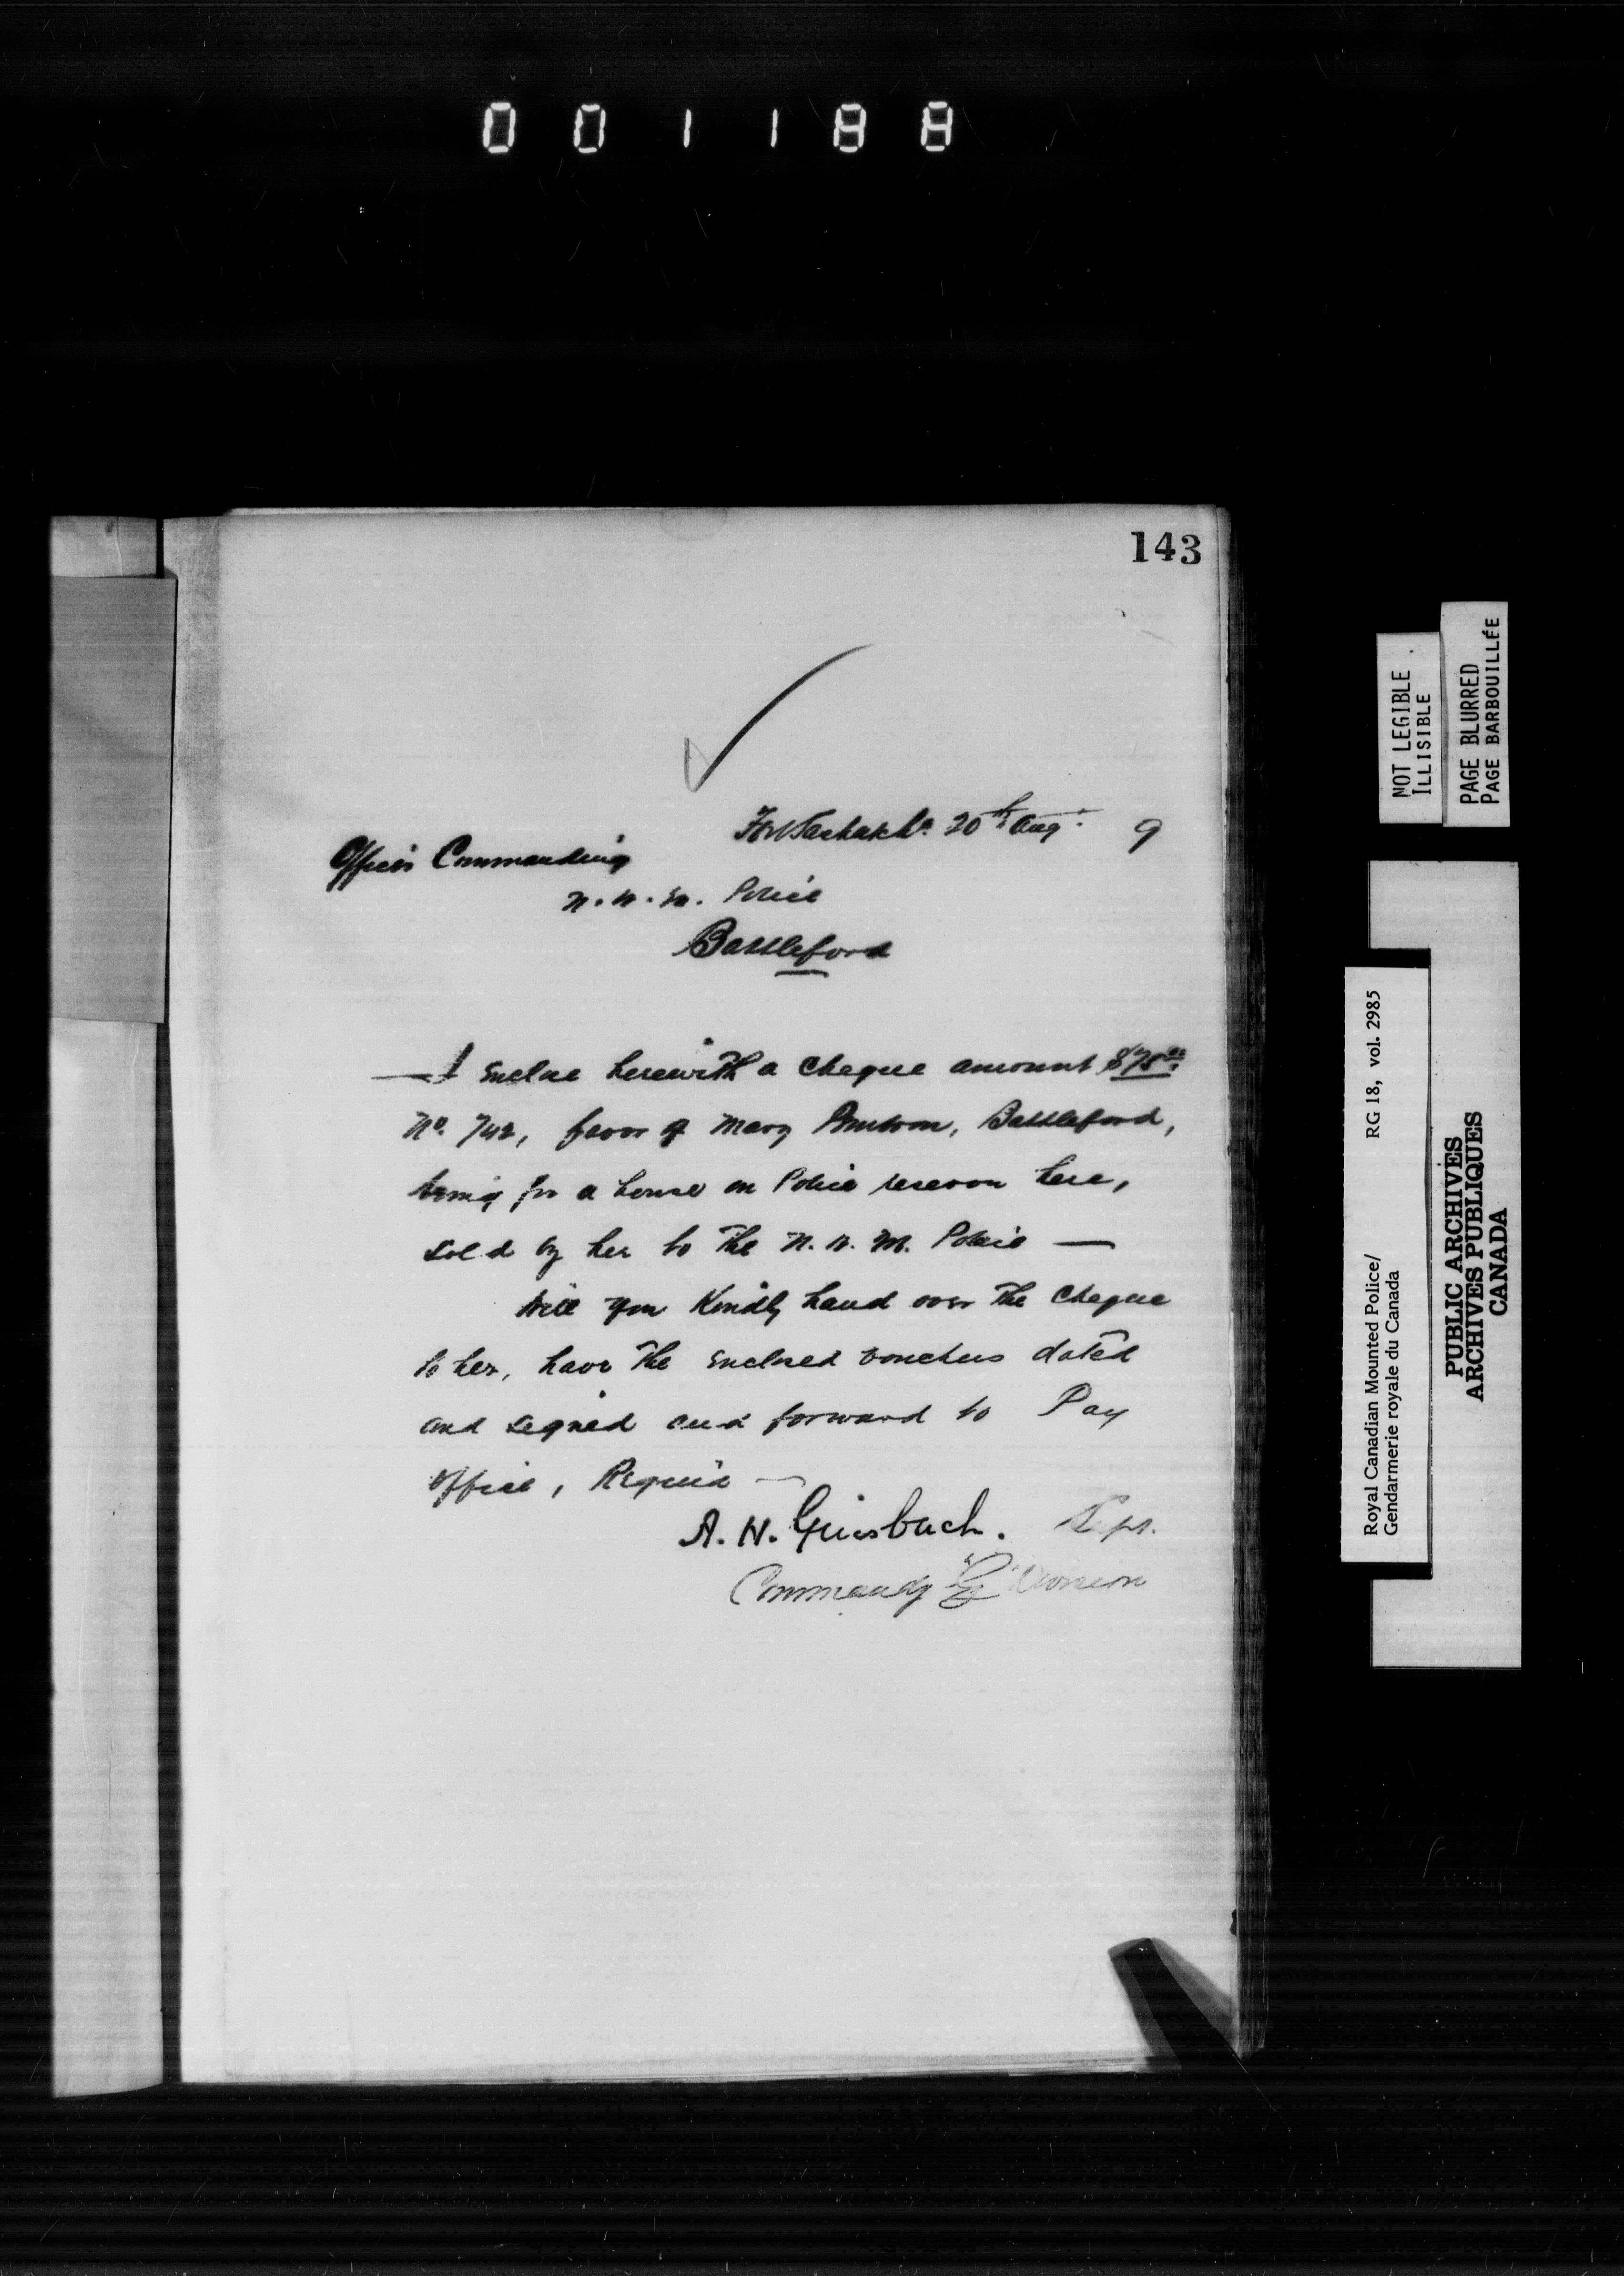 001188
143
Fort Saskatn. 20th Aug. 9
Officer Commanding
N. W. M. Police
Battleford
I enclose herewith a cheque amount $75.00
No. 742, favor of Mary, Battleford,
being for a house on Police reserve here,
sold by her to the N. W. M. Police —
Will you Kindly hand over the cheque
to her, have the enclosed vouchers dated
and signed and forward to Pay
Office, Regina —
A. H. Griesbach. Supt.
Commandg "G" Division
NOT LEGIBLE
ILLISIBLE
PAGE BLURRED
PAGE BARBOUILLÉE
Royal Canadian Mounted Police/ RG 18, vol. 2985
Gendarmerie royale du Canada
PUBLIC ARCHIVES
ARCHIVES PUBLIQUES
CANADA